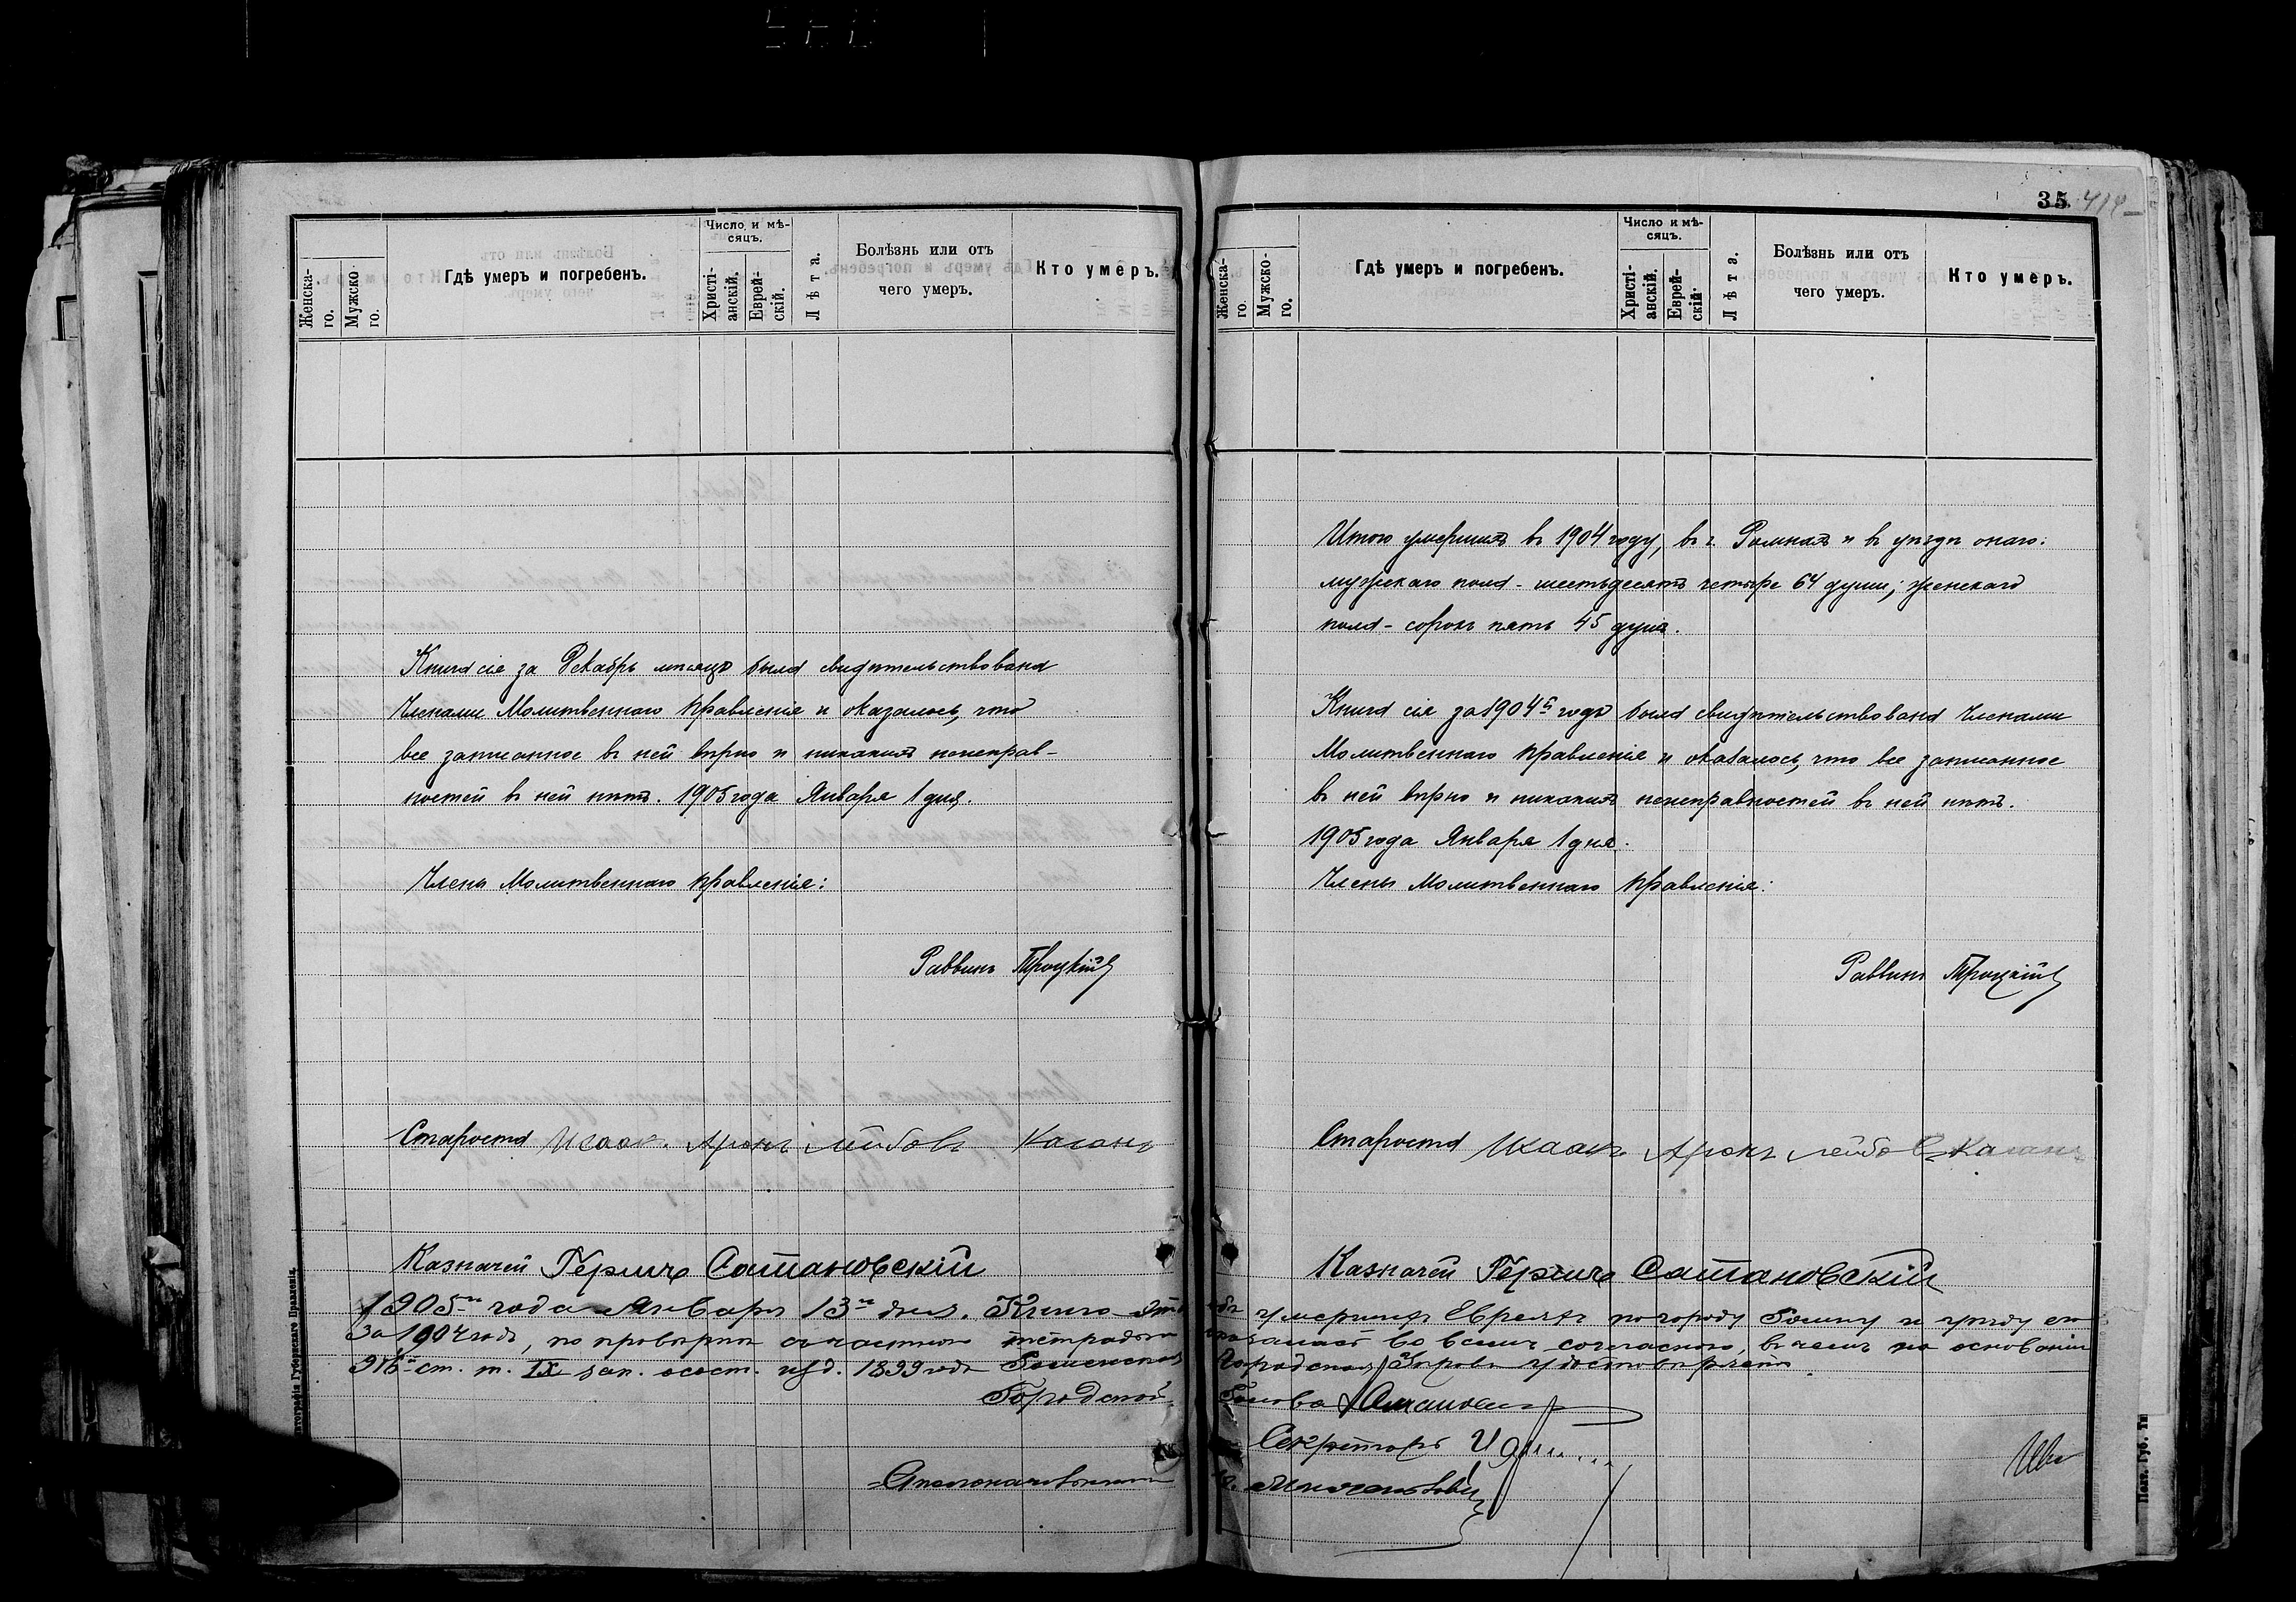 35
Женска-
го.
Мужско-
го.
Гдѣ умеръ и погребенъ.
Число и мѣ-
сяцъ.
Христі-
анскій.
Еврей-
скій.
Лѣта.
Болѣзнь или отъ
чего умеръ.
Кто умеръ.
Книга сія за Декабрь мѣсяцъ была свидѣтельствована
Членами Молитвеннаго Правленія и оказалось, что
все записанное въ ней вѣрно и никакихъ неисправ-
ностей въ ней нѣтъ. 1905 года Января 1 дня.
Члены Молитвеннаго Правленія:
Раввинъ Троцкій
Староста Исаакъ Аронъ Лейбовъ Каганъ
Казначей Гершъ Сатановскій
Женска-
го
Мужско-
го.
Гдѣ умеръ и погребенъ.
Число и мѣ-
сяцъ.
Христі-
анскій.
Еврей-
скій.
Лѣта.
Болѣзнь или отъ
чего умеръ.
Кто умеръ.
Итого умершихъ въ 1904 году, въ г. Ромнахъ и въ уѣздѣ онаго:
мужскаго пола - шестьдесятъ четыре 64 души; женскаго
пола - сорокъ пять 45 душъ.
Книга сія за 1904й годъ была свидѣтельствована Членами
Молитвеннаго Правленія и оказалось, что все записанное
въ ней вѣрно и никакихъ неисправностей въ ней нѣтъ.
1905 года Января 1 дня.
Члены Молитвеннаго Правленія:
Раввинъ Троцкій
Староста Исаакъ Аронъ Лейбовъ Каганъ
Казначей Гершъ Сатановскій
1905го года Января 13го дня. Книга эта объ умершихъ Евреяхъ по городу Ромну и уѣзду его
за 1904 годъ, по провѣркѣ съ частною тетрадью оказалась во всемъ согласною, въ чемъ на основаніи
ст. т. IX зак. о сост. изд. 1899 года Роменская Городская Управа удостовѣряетъ.
Городской Голова
Секретарь